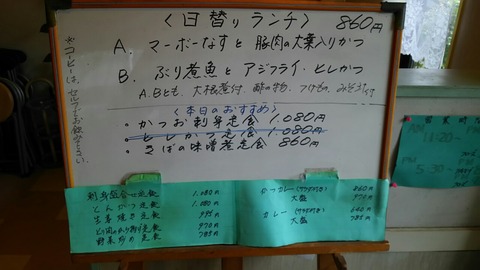 〈日替りランチ〉 860円
A. マーボーなすと豚肉の大葉入りかつ
B. ぶり煮魚とアジフライ・ヒレかつ
A.Bとも、大根煮付、酢の物、つけもの、みそ汁付
〈本日のおすすめ〉
・かつお刺身定食 1.080円
・ヒレかつ定食 1.080円
・さばの味噌煮定食 860円
※コーヒーは、セルフでお飲み下さい。
刺身盛合せ定食 1.080円
とんかつ定食 1.080円
生姜焼き定食
970円
野菜炒め定食 785円
かつカレー(サラダ付き) 860円
大盛 970円
カレー(サラダ付き) 640円
大盛 785円
営業時間
AM
11:20~
PM
5:30~